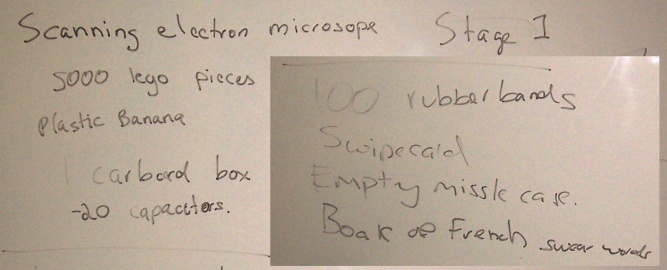 Scanning electron microsope Stage 1
5000 lego pieces
Plastic Banana
1 carbord box
-20 capacitors.
100 rubber bands
Swipecard
Empty missle case.
Book of French swear words